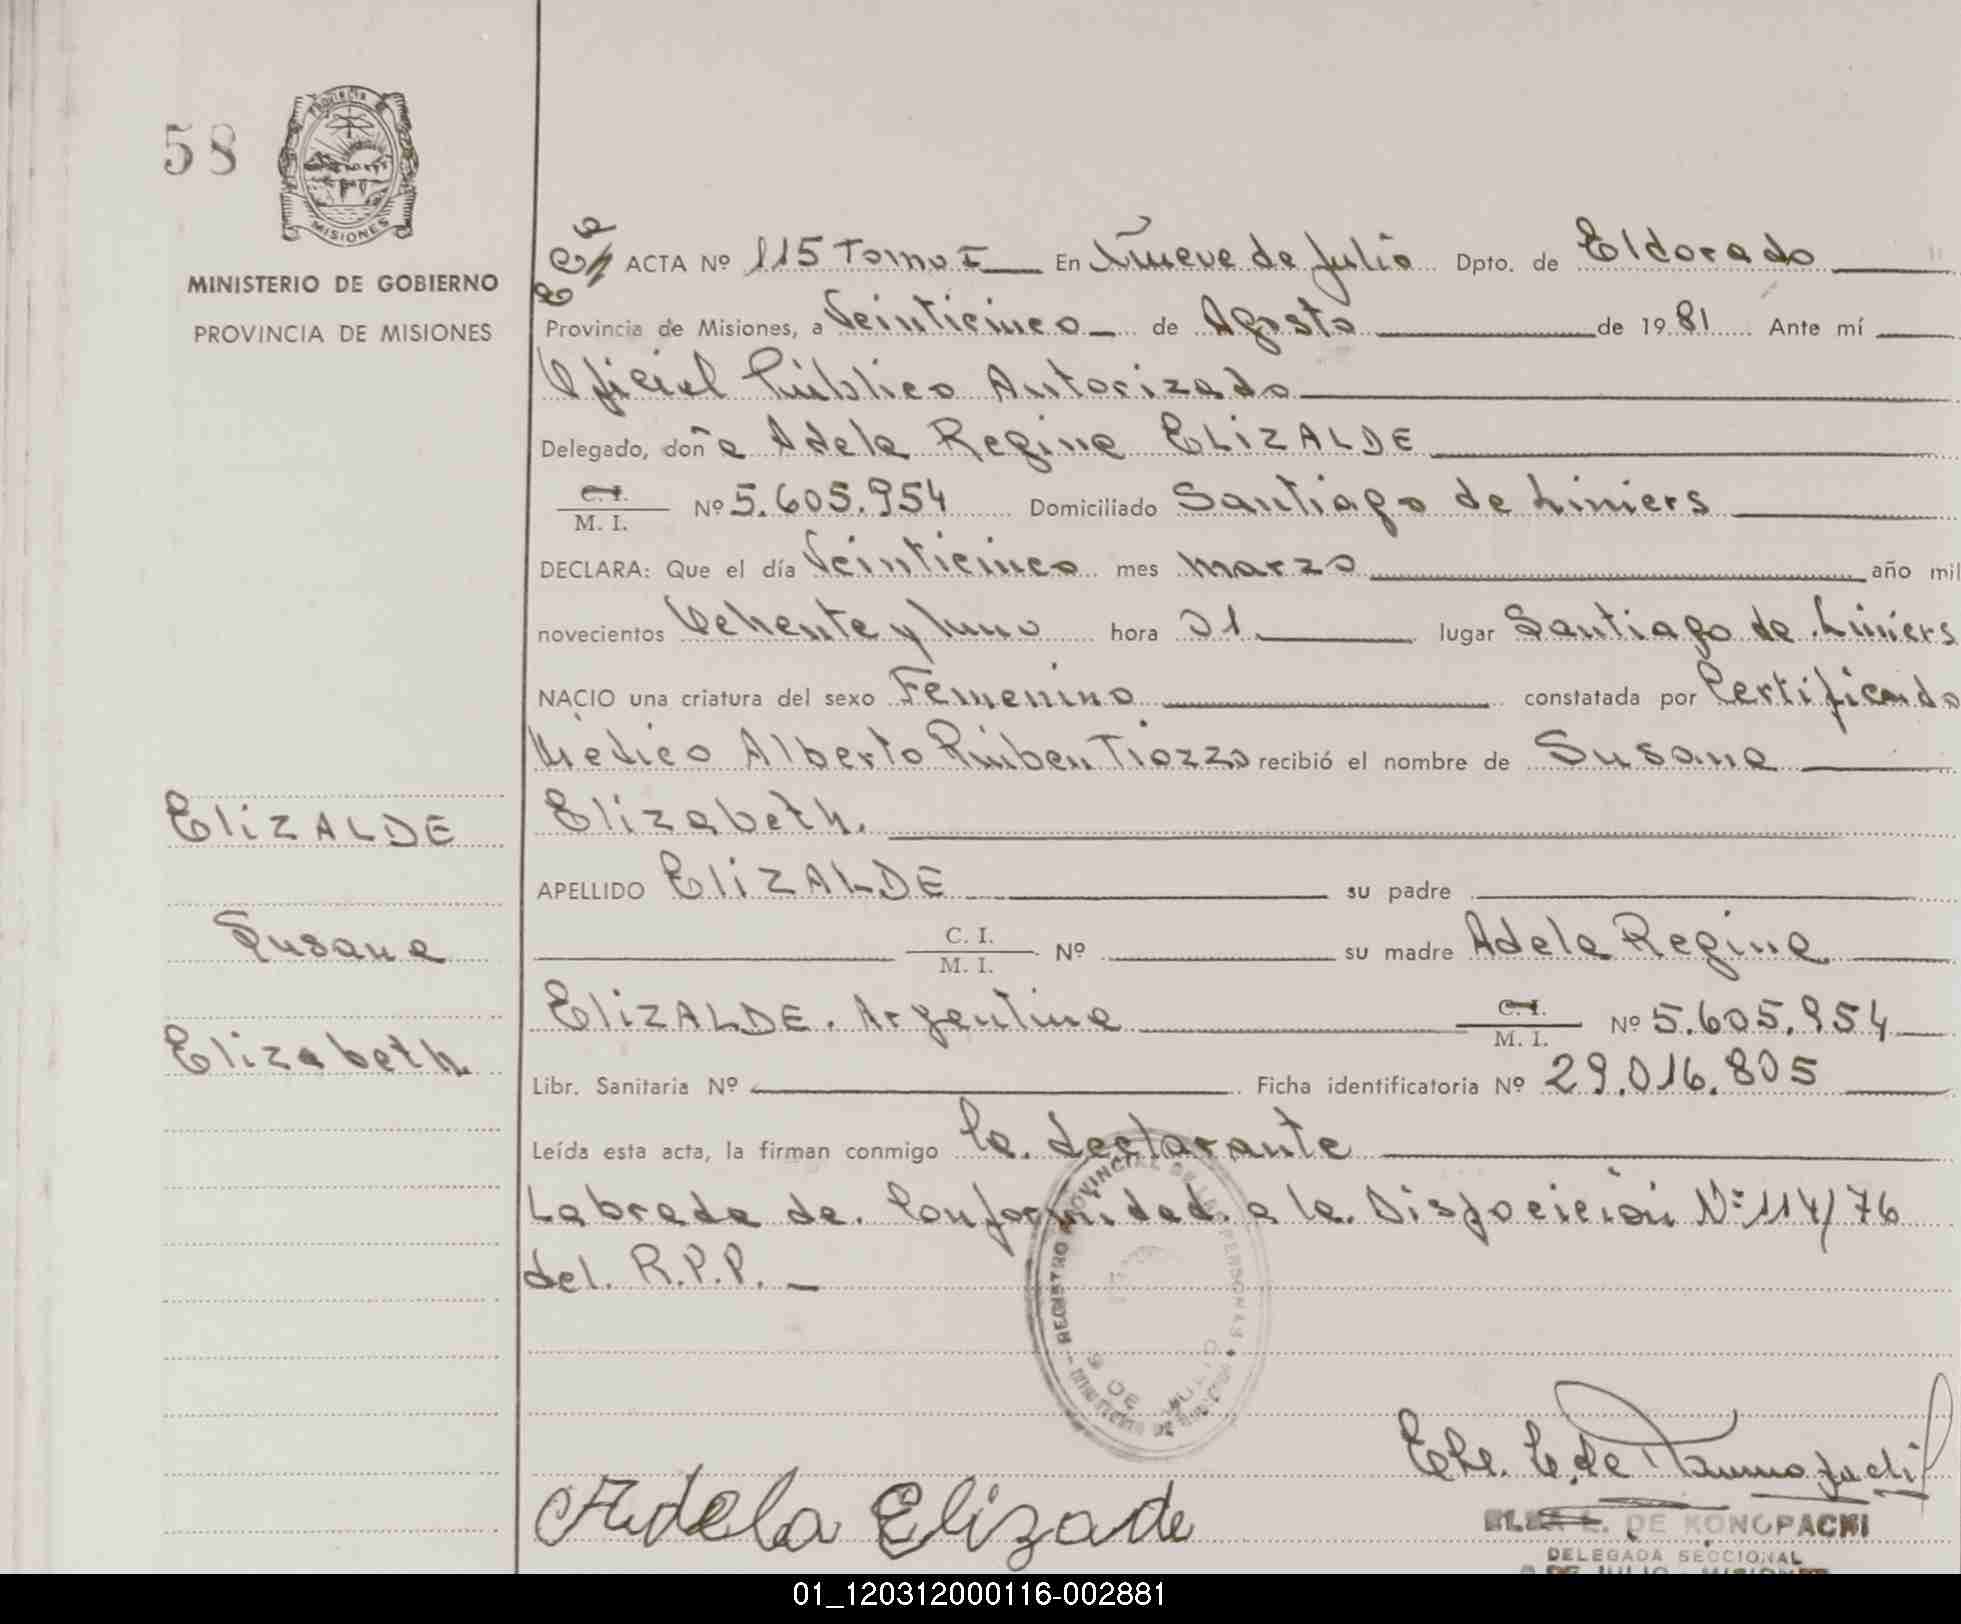 58
PROVINCIA
MISIONES
MINISTERIO DE GOBIERNO
PROVINCIA DE MISIONES
ACTA Nº 115 Tomo I En Nueve de Julio Dpto. de Eldorado
Provincia de Misiones, a Veinticinco de Agosto de 1981 Ante mí
Oficial Público Autorizado
Delegado, doña Adela Regina ELIZALDE
C. I. M. I. Nº 5.605.954 Domiciliado Santiago de Liniers
DECLARA: Que el día Veinticinco mes marzo año mil
novecientos Ochenta y Uno hora 01 lugar Santiago de Liniers
NACIO una criatura del sexo Femenino constatada por Certificado
Médico Alberto Rúben Tiozzo recibió el nombre de Susana
ELIZALDE Elizabeth.
APELLIDO ELIZALDE su padre
Susana C. I. M. I. Nº su madre Adela Regina
ELIZALDE. Argentina C. I. M. I. Nº 5.605.954
Elizabeth.
Libr. Sanitaria Nº Ficha identificatoria Nº 29.016.805
Leída esta acta, la firman conmigo la declarante
Labrada de Conformidad a la Disposición Nº 114/76
del R.P.P.
REGISTRO PROVINCIAL DE LAS PERSONAS
9 DE JULIO
Adela Elizade
E. DE KONOPACKI
DELEGADA SECCIONAL
9 DE JULIO - MISIONES
01_120312000116-002881